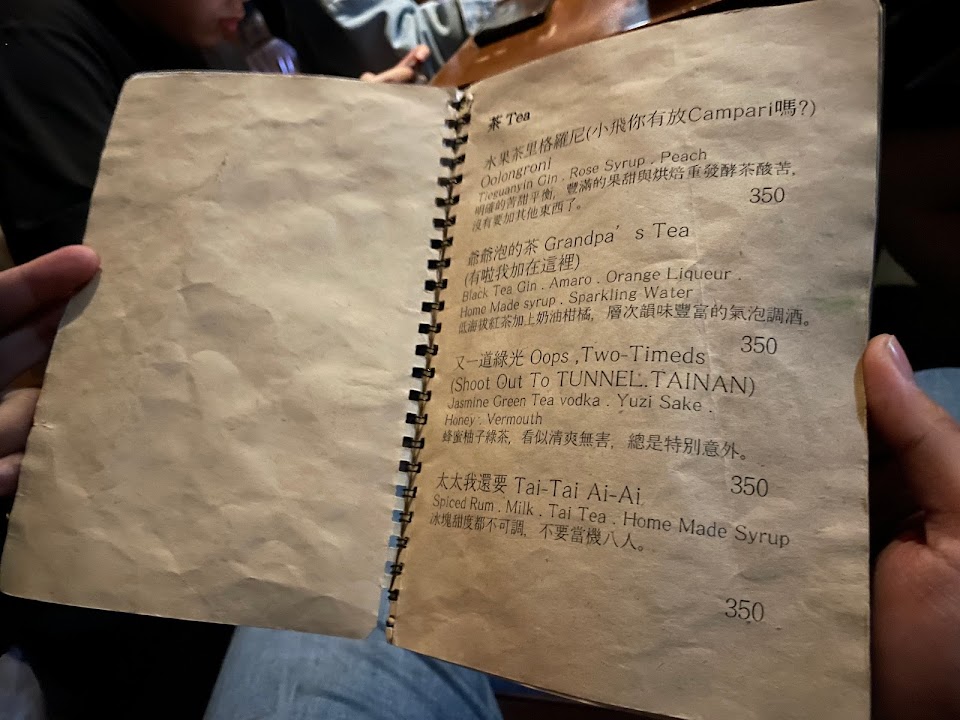 茶 Tea
水果茶里格羅尼(小飛你有放Campari嗎?)
Oolongroni
Tieguanyin Gin . Rose Syrup . Peach
明確的苦甜平衡, 豐滿的果甜與烘焙重發酵茶酸苦,
沒有要加其他東西了。
350
爺爺泡的茶 Grandpa's Tea
(有啦我加在這裡)
Black Tea Gin . Amaro . Orange Liqueur .
Home Made syrup . Sparkling Water
低海拔紅茶加上奶油柑橘, 層次韻味豐富的氣泡調酒。
350
又一道綠光 Oops ,Two-Timeds
(Shoot Out To TUNNEL.TAINAN)
Jasmine Green Tea vodka . Yuzi Sake .
Honey . Vermouth
蜂蜜柚子綠茶, 看似清爽無害, 總是特別意外。
350
太太我還要 Tai-Tai Ai-Ai
Spiced Rum . Milk . Tai Tea . Home Made Syrup
冰塊甜度都不可調, 不要當機八人。
350